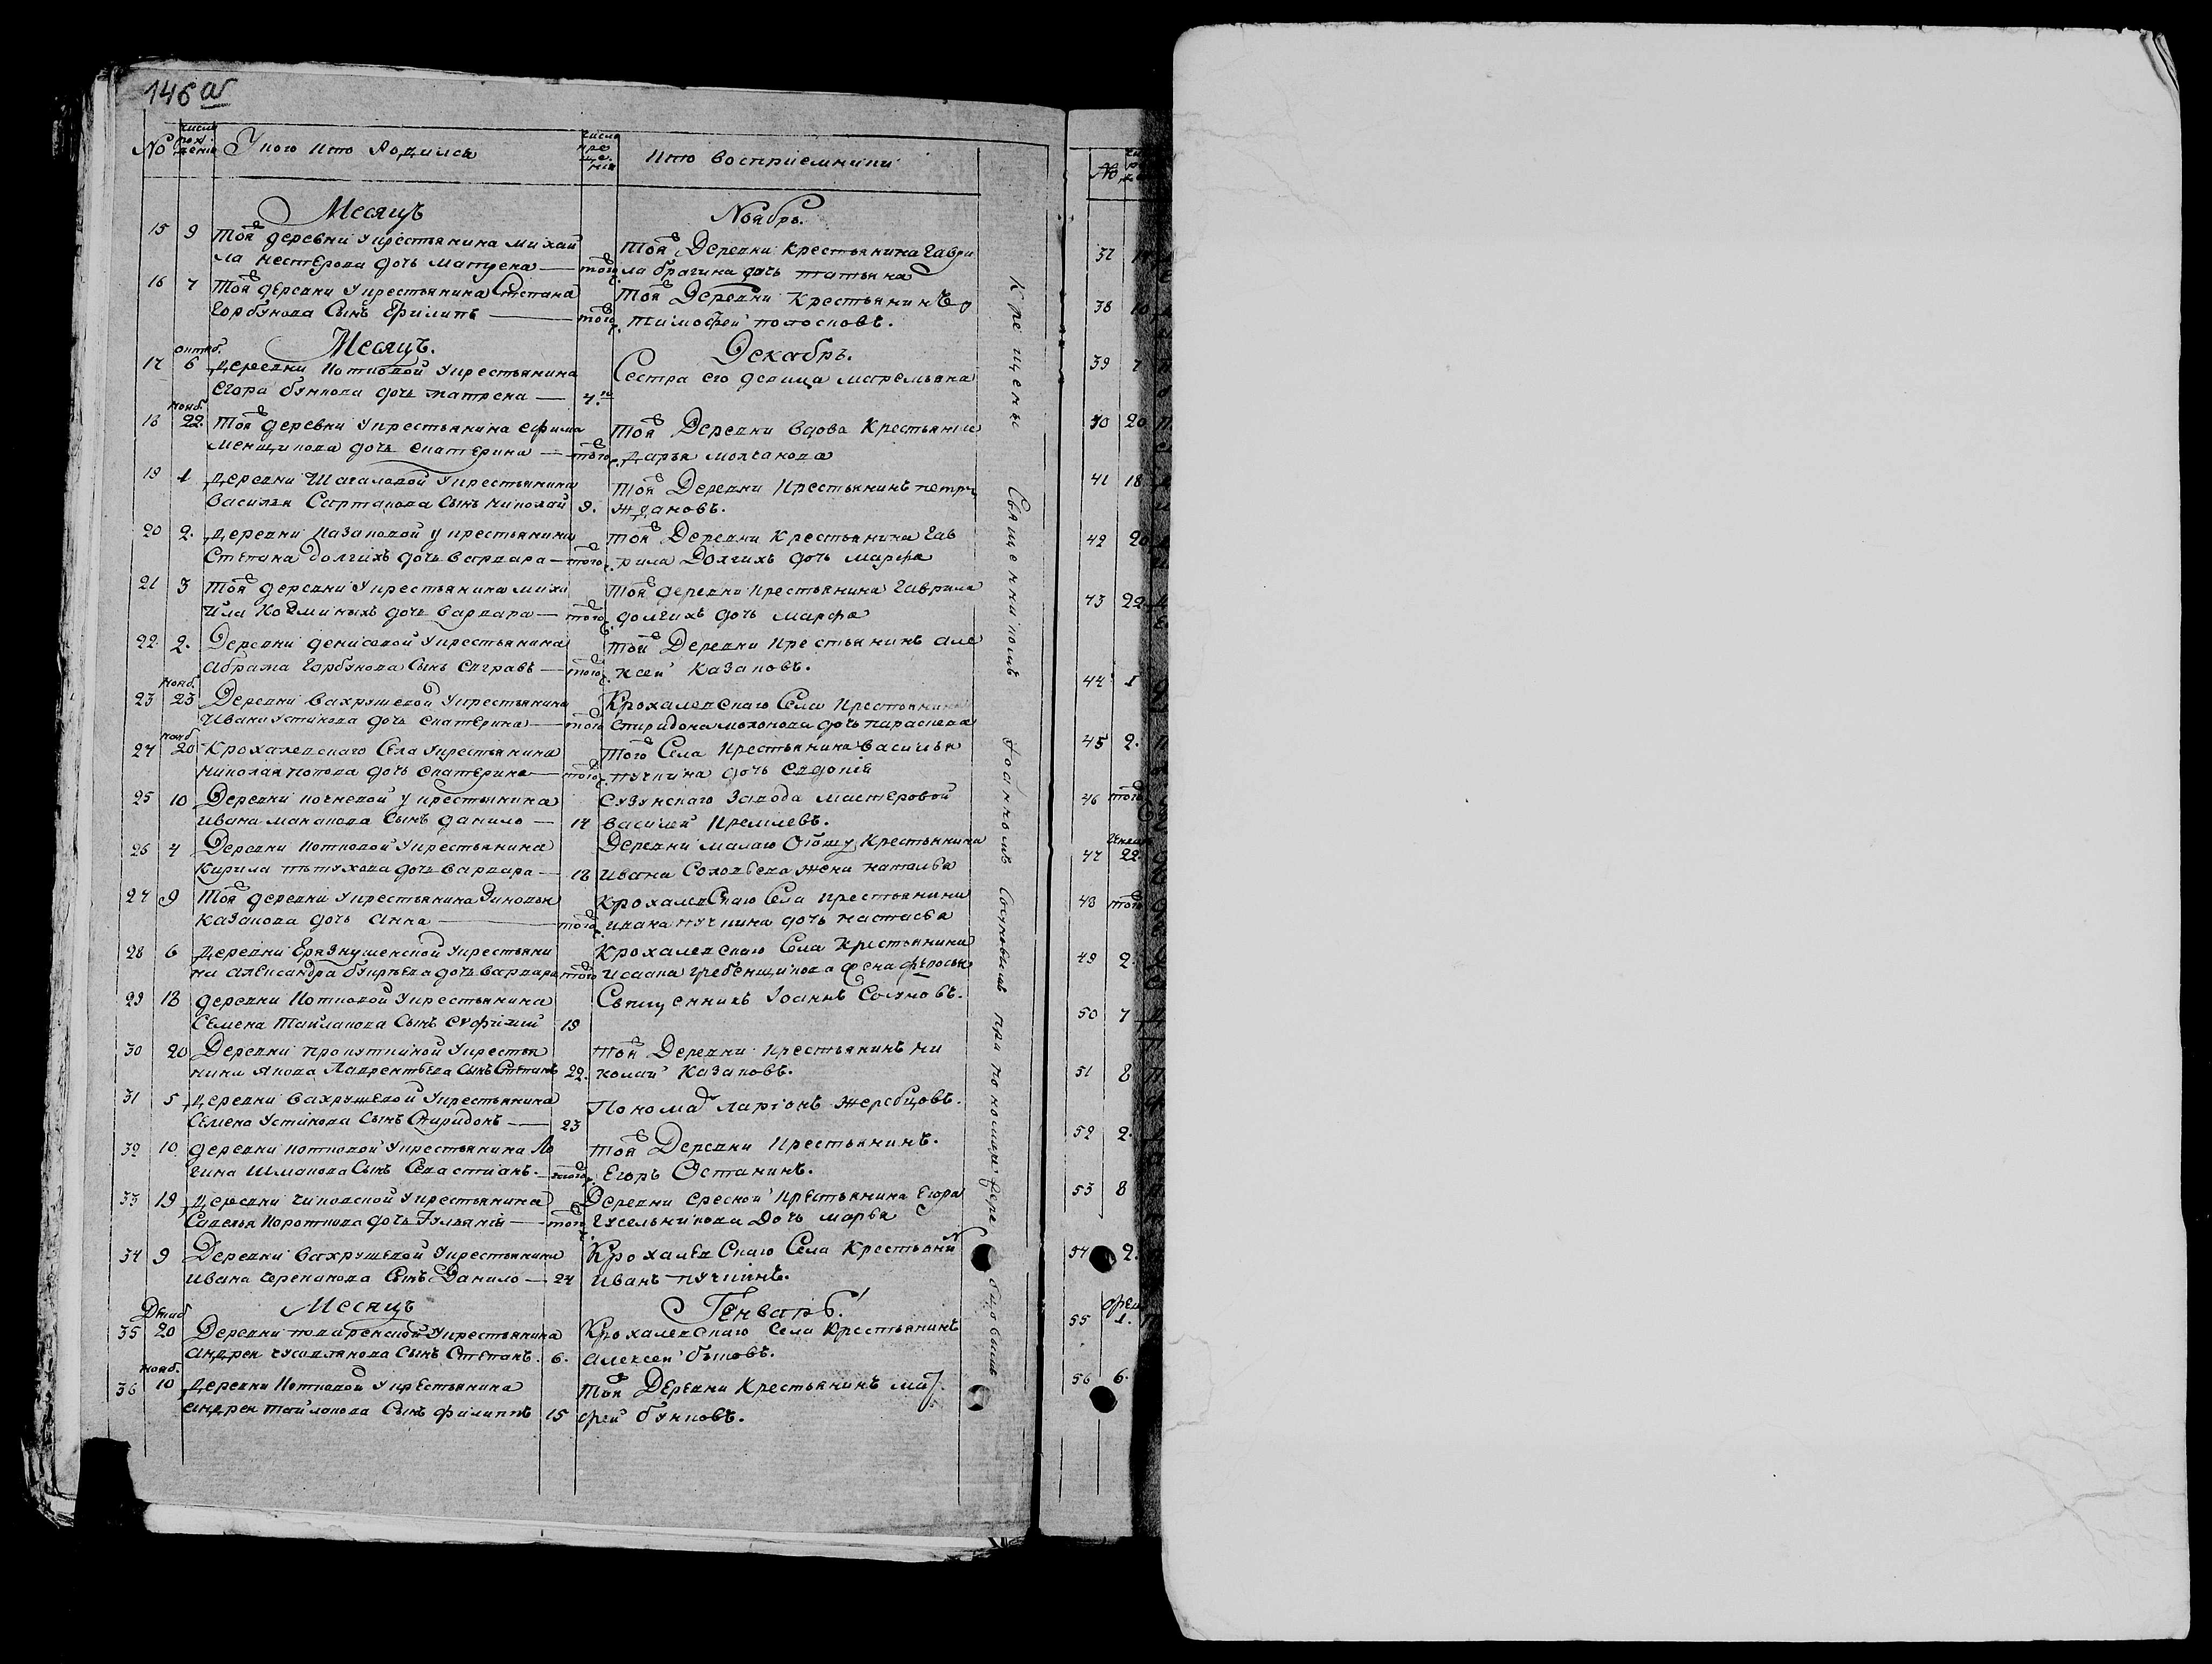 146 а
№ число рожденія У кого кто родился число крещенія Кто восприемники
Месяцъ Ноябрь.
15 9 Той деревни у крестьянина михай
ла нестерова дочь матрена — того
Той Деревни крестьянина гаври
ла брагина дочь татьяна
16 7 Той деревни у крестьянина степана
Горбунова Сынъ Филипъ — того
Той Деревни Крестьянинъ
тимофей полосковъ.
Месяцъ. Декабрь.
17 октяб. 6 деревни Котковой у крестьянина
егора бункова дочь матрена — 4.
Сестра его девица маремьяна
18 нояб. 22. той деревни у крестьянина ефима
менщикова дочь екатерина — того
Той Деревни вдова Крестьянка
дарья молчанова
19 1 деревни Шагаловой у крестьянина
василья Сартакова Сынъ николай 9.
Той Деревни крестьянинъ петръ
ждановъ.
20 2. деревни Казаковой у крестьянина
Степана долгихъ дочь варвара — того
той Деревни Крестьянина гав
рила Долгихъ дочь марфа
21 3 той деревни у крестьянина миха
ила Козминыхъ дочь варвара — того
той деревни крестьянина гаврила
долгихъ дочь марфа
22. 2. Деревни денисовой у крестьянина
абрама горбунова сынъ евграфъ — того
той Деревни крестьянинъ але
ксей казаковъ.
23 нояб. 23 Деревни вахрушевой у крестьянина
Ивана устинова дочь екатерина — того
Крохалевскаго Села крестьянина
спиридона мохонова дочь параскева
24 нояб 20 Крохалевскаго Села у крестьянина
николая попова дочь екатерина — того
Того Села крестьянина василья
пучкина дочь евдокия
25 10 Деревни кочневой у крестьянина
ивана манакова Сынъ данило — 14
Сузунскаго Завода мастеровой
василей кремлевъ.
26 4 Деревни котковой у крестьянина
Кирила петухова дочь варвара — 18
Деревни малаго Оюшу Крестьянина
ивана Соловьева жена наталья
27 9 Той деревни у крестьянина Зиновья
казакова дочь анна — того
Крохалевскаго Села крестьянина
ивана пучкина дочь настасья
28 6 деревни Ерязнушенской у крестьяни
на александра бункова дочь варвара того
Крохалевскаго Села Крестьянина
исаака гребенщикова жена федосья
29 18 деревни Котковой у крестьянина
Семена тайлакова Сынъ еуфимий 19
Священникъ Іоаннъ Сосуновъ.
30 20 Деревни прокуткиной у крестья
нина якова Лаврентьева Сынъ Степанъ 22.
той Деревни крестьянинъ ни
колай казаковъ.
31 5 деревни вахрушевой у крестьянина
Семена устинова Сынъ Спиридонъ — 23
Понома ларіонъ жеребцовъ.
32 10. деревни котковой у крестьянина ло
гина шмакова Сынъ Севастианъ. — того
той Деревни крестьянинъ.
Егоръ Останинъ.
33 19 деревни чиковской у крестьянина
Савелья короткова дочь іульянія — того
Деревни ересной крестьянина егора
гусельникова Дочь марья
34 9 Деревни вахрушевой у крестьянина
ивана черепанова Сынъ Данило — 24
Крохалевскаго Села Крестьянин
иванъ пучкинъ.
Месяцъ Генварь!
35 Декаб 20 Деревни поваренской у крестьянина
андрея гусодлякова Сынъ Степанъ. 6.
Крохалевскаго Села Крестьянинъ
алексей бытовъ.
36 нояб. 10 деревни Котковой у крестьянина
андрея тайлакова Сынъ филиппъ 15
той Деревни Крестьянинъ ма
фей бунковъ.
Крещены Священникомъ Іоанномъ Сосуновымъ при пономаре
№
37
38 10
39 7
40 20
41 18
42 20
43 22
44 1
45 2.
46 того
47 22.
48 того
49 2.
50 7
51 8
52 2.
53 8
54 2.
55 1.
56 6.